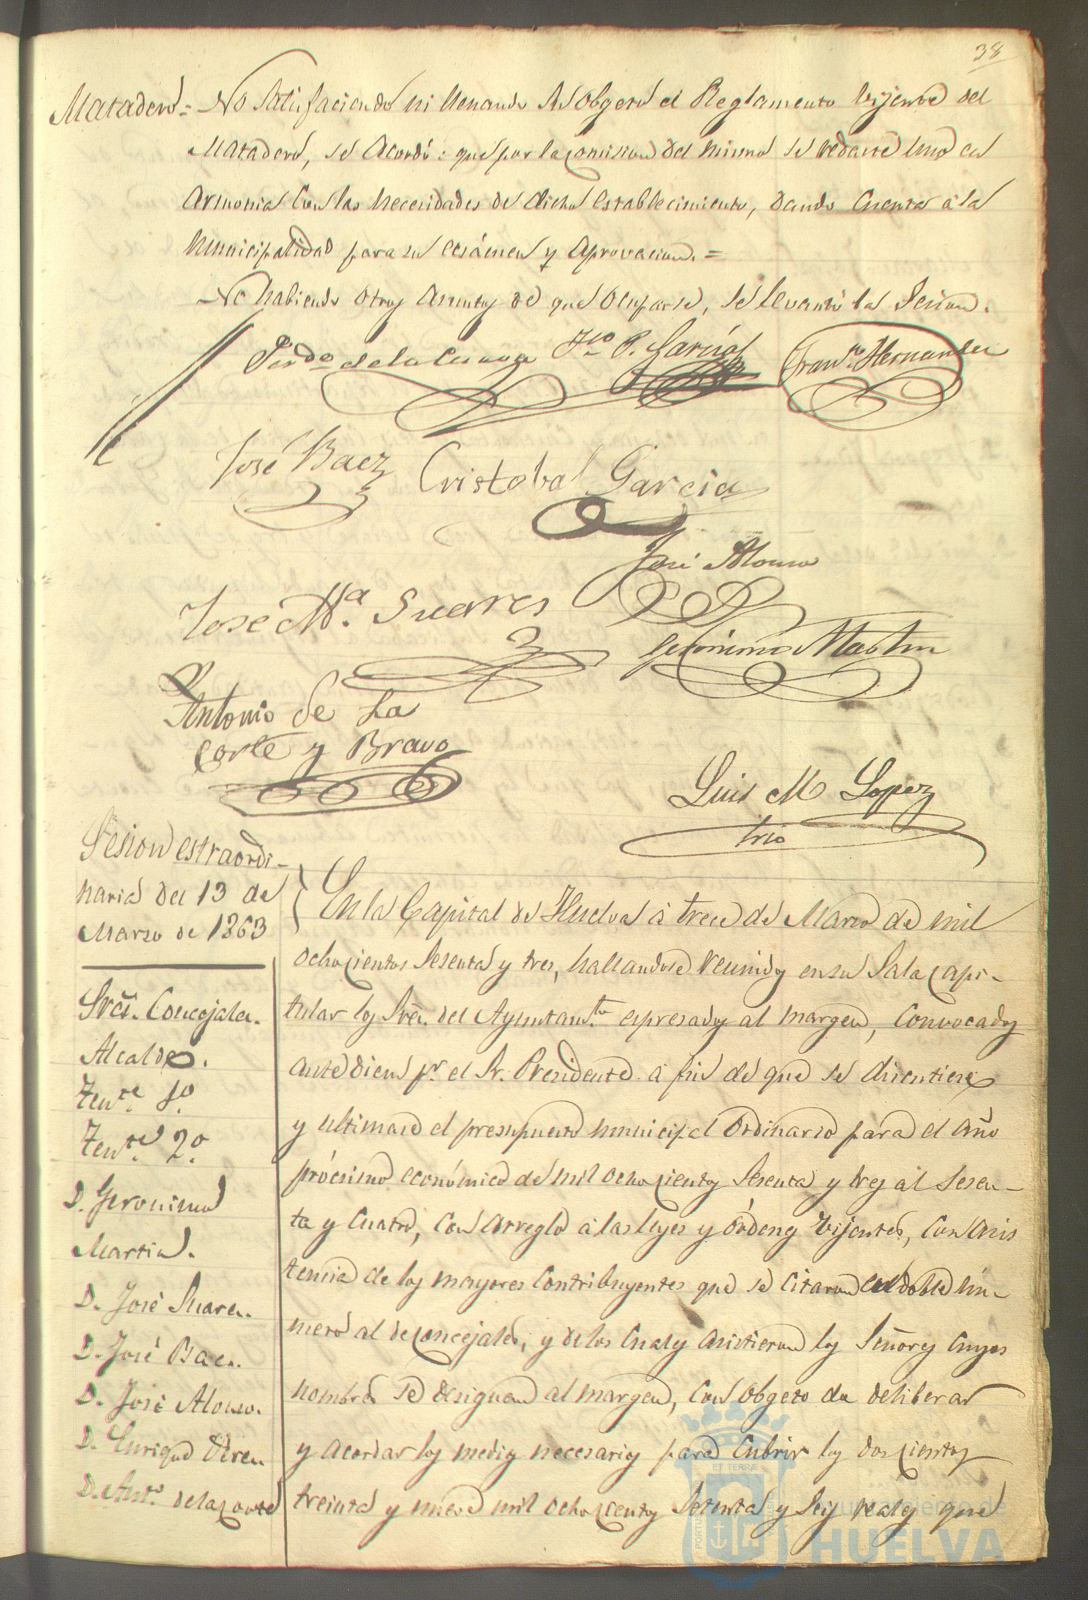 38
Matadero = No satisfaciendo ni llenando su obgeto el Reglamento vijente del
Matadero, se acordó: que por la comision del mismo se redacte uno en
armonia con las necesidades de dicho establecimiento, dando cuenta á la
municipalidad para su ecsámen y aprovacion. =
No habiendo otros asuntos de que ocuparse, se levantó la Sesion.
Perdo de la Cueva Fco P. García Franco Hernandez
José Baez Cristobal Garcia
José Alonso
Jose Ma. Suares
Gerónimo Martin
Antonio de la
Corte y Bravo
Luis M Lopez
Srio
Sesion estraordi-
naria del 13 de
Marzo de 1863
Sres. Concejales.
Alcalde.
Tente 1o.
Tente 2o.
D. Geronimo
Martin.
D. José Suarez.
D. José Baez.
D. José Alonso.
D. Enrique
D. Anto. de la Corte
En la Capital de Huelva á trece de Marzo de mil
ochocientos sesenta y tres, hallandose reunidos en su Sala capi-
tular los Sres. del Ayuntamto. espresados al margen, convocados
ante diem pr. el Sr. Presidente á fin de que se discutiese
y ultimase el presupuesto municipal ordinario para el año
prócsimo económico de mil ochocientos sesenta y tres al sesen-
ta y cuatro, con arreglo á las leyes y órdenes vijentes, con asis
tencia de los mayores contribuyentes que se citaron en doble nú-
mero al de concejales, y de los cuales asistieron los Señores cuyos
nombres se designan al margen, con obgeto de deliberar
y acordar los medios necesarios para cubrir los doscientos
treinta y nueve mil ochocientos setenta y seis reales que
Ayuntamiento de
HUELVA